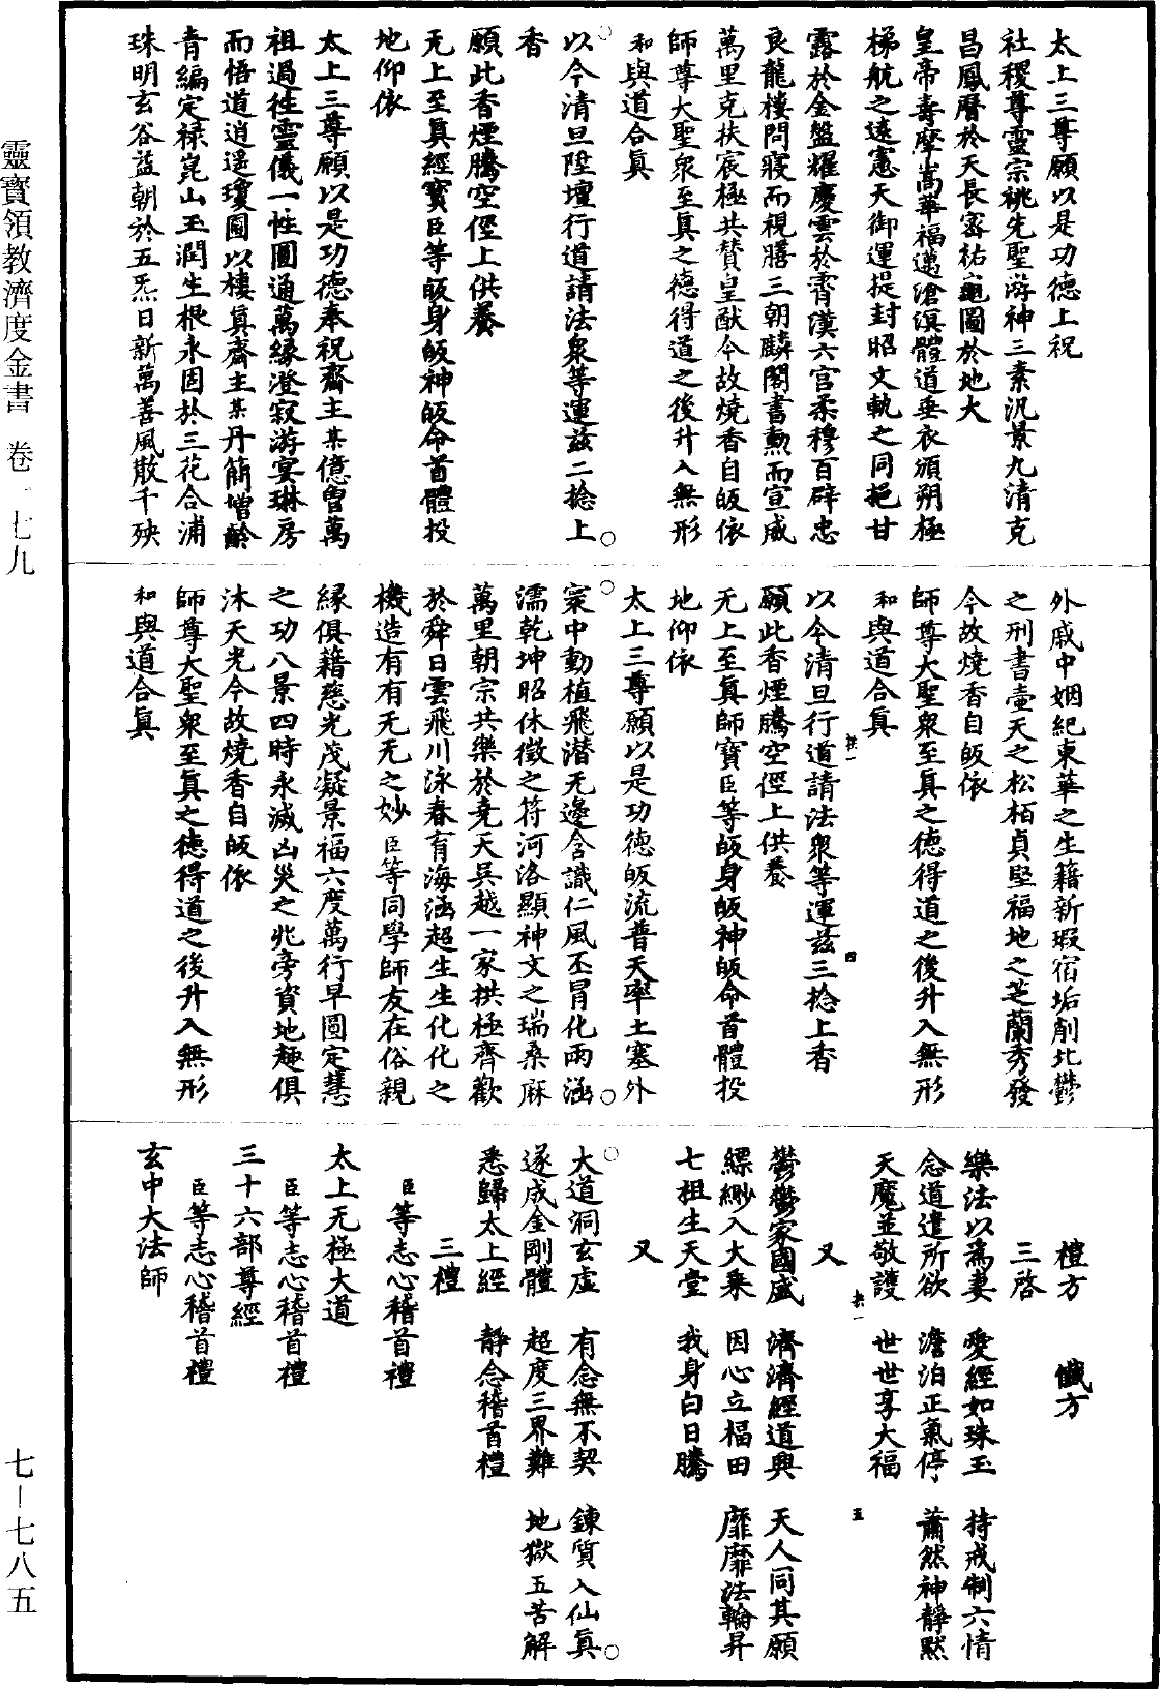 太上三尊願以是功德上祝
社稷尊靈宗祧先聖游神三素汎景九清克
昌鳳曆於天長密祐龜圖於地久
皇帝壽摩嵩華福邁滄溟體道垂衣頒朔極
梯航之遠憲天御運提封昭文軌之同挹甘
露於金盤耀慶雲於霄漢六宮柔穆百辟忠
良龍樓問寢而視膳三朝麟閣書勲而宣威
萬里克扶宸極共贊皇猷今故燒香自皈依
師尊大聖衆至真之德得道之後升入無形
和與道合真
以今清旦陞壇行道請法衆等運玆二捻上
香
願此香煙騰空徑上供養
无上至真經寳臣等皈身皈神皈命首體投
地仰依
太上三尊願以是功德奉祝齋主某億曾萬
祖過往靈儀一性圓通萬緣澄寂游宴琳房
而悟道逍遥瓊圃以棲真齋主某丹簡增齡
青編定祿崑山玉潤生根永固於三花合浦
珠明玄谷益朝於五炁日新萬善風散千殃
外戚中姻紀東華之生籍新瑕宿垢削北酆
之刑書壷天之松栢貞堅福地之芝蘭秀發
今故燒香自皈依
師尊大聖衆至真之德得道之後升入無形
和與道合真
以今清旦行道請法衆等運玆三捻上香
願此香煙騰空徑上供養
无上至真師寳臣等皈身皈神皈命首體投
地仰依
太上三尊願以是功德皈流普天率土塞外
寰中動植飛潜无邊含識仁風丕冐化雨涵
濡乾坤昭休徵之符河洛顯神文之瑞桑麻
萬里朝宗共樂於堯天吳越一家拱極齊歡
於舜日雲飛川泳春育海涵超生生化化之
機造有有无无之妙臣等同學師友在俗親
緣俱籍慈光茂凝景福六度萬行早圓定慧
之功八景四時永滅凶災之兆旁資地趣俱
沐天光今故燒香自皈依
師尊大聖衆至真之德得道之後升入無形
和與道合真
禮方　懺方
三啓
樂法以爲妻　愛經如珠玉　持戒制六情
念道遣所欲　澹泊正氣停　蕭然神靜默
天魔並敬護　世世享大福
又
鬱鬱家國盛　濟濟經道興　天人同其願
縹緲入大乘　因心立福田　靡靡法輪昇
七祖生天堂　我身白日騰
又
大道洞玄虛　有念無不契　鍊質入仙真
遂成金剛體　超度三界難　地獄五苦解
悉歸太上經　靜念稽首禮
三禮
臣等志心稽首禮
太上无極大道
臣等志心稽首禮
三十六部尊經
臣等志心稽首禮
玄中大法師
靈寳領教濟度金書　卷一七九
七—七八五